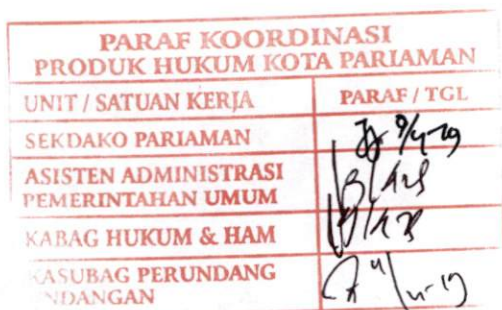 PARAF KOORDINASI
PRODUK HUKUM KOTA PARIAMAN
UNIT / SATUAN KERJA
PARAF / TGL
SEKDAKO PARIAMAN
ASISTEN ADMINISTRASI
PEMERINTAHAN UMUM
KABAG HUKUM & HAM
KASUBAG PERUNDANG
NDANGAN